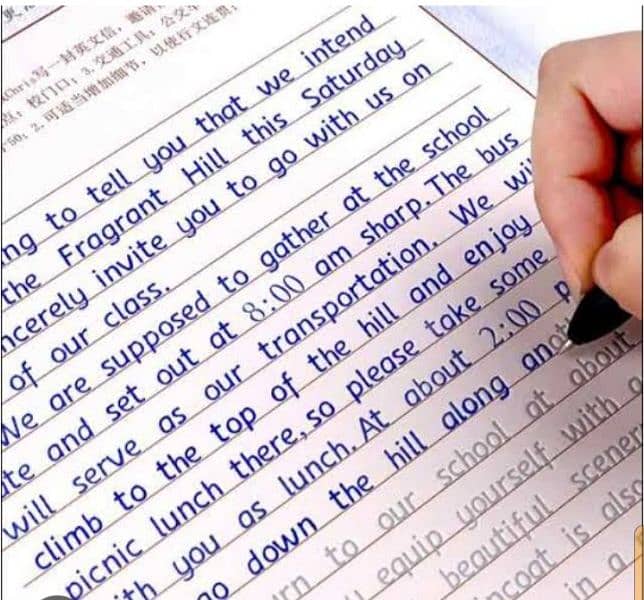 更,
Chris写一封英文信, 邀请
点: 校门口; 3. 交通工具: 公交车
7:50; 2. 可适当增加细节, 以使行文连贯;
to tell you that we intend
the Fragrant Hill this Saturday
invite you to go with us on
of our class.
We are supposed to gather at the school
and set out at 8:00 am sharp. The bus
will serve as our transportation. We
climb to the top of the hill and enjoy
picnic lunch there, so please take some
you as lunch. At about 2:00 p
down the hill along
to our school at about
equip yourself with
beautiful
is also
in a